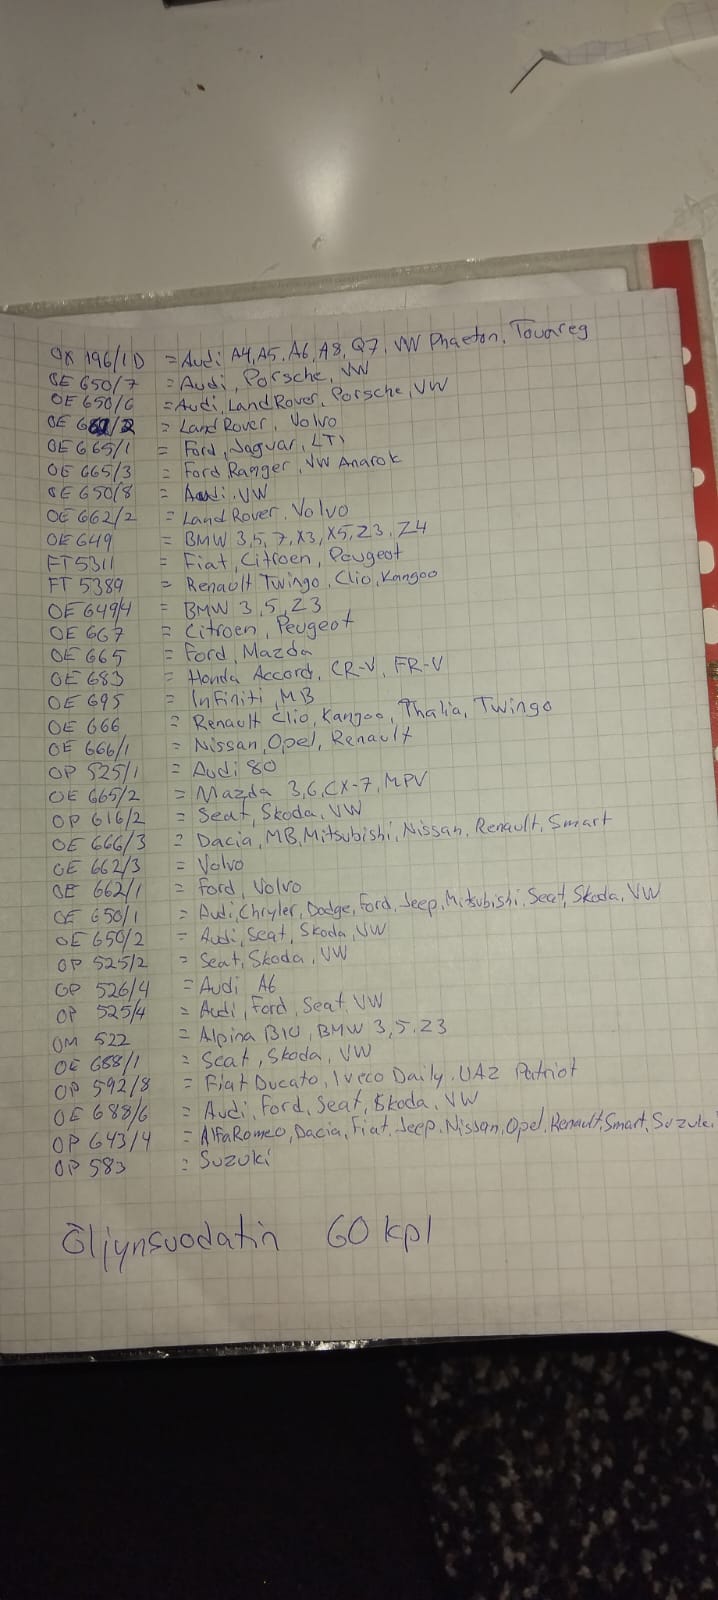 OX 196/1D = Audi A4, A5, A6, A8, Q7, VW Phaeton, Touareg
OE 650/7 = Audi, Porsche, VW
OE 650/6 = Audi, LandRover, Porsche, VW
OE 662/2 = LandRover, Volvo
OE 665/1 = Ford, Jaguar, LTI
OE 665/3 = Ford Ranger, VW Anarok
OE 650/8 = Audi, VW
OE 662/2 = LandRover, Volvo
OE 649 = BMW 3, 5, 7, X3, X5, Z3, Z4
FT 5311 = Fiat, Citroen, Peugeot
FT 5389 = Renault Twingo, Clio, Kangoo
OE 649/4 = BMW 3, 5, Z3
OE 667 = Citroen, Peugeot
OE 665 = Ford, Mazda
OE 683 = Honda Accord, CR-V, FR-V
OE 695 = Infiniti, MB
OE 666 = Renault Clio, Kangoo, Thalia, Twingo
OE 666/1 = Nissan, Opel, Renault
OP 525/1 = Audi 80
OE 665/2 = Mazda 3, 6, CX-7, MPV
OP 616/2 = Seat, Skoda, VW
OE 666/3 = Dacia, MB, Mitsubishi, Nissan, Renault, Smart
OE 662/3 = Volvo
OE 662/1 = Ford, Volvo
OE 650/1 = Audi, Chryler, Dodge, Ford, Jeep, Mitsubishi, Seat, Skoda, VW
OE 650/2 = Audi, Seat, Skoda, VW
OP 525/2 = Seat, Skoda, VW
OP 526/4 = Audi A6
OP 525/4 = Audi, Ford, Seat, VW
OM 522 = Alpina B10, BMW 3, 5, Z3
OE 688/1 = Seat, Skoda, VW
OP 592/8 = Fiat Ducato, Iveco Daily, UAZ Patriot
OE 688/6 = Audi, Ford, Seat, Skoda, VW
OP 643/4 = AlfaRomeo, Dacia, Fiat, Jeep, Nissan, Opel, Renault, Smart, Suzuki
OP 583 = Suzuki
Öljynsuodatin 60 kpl